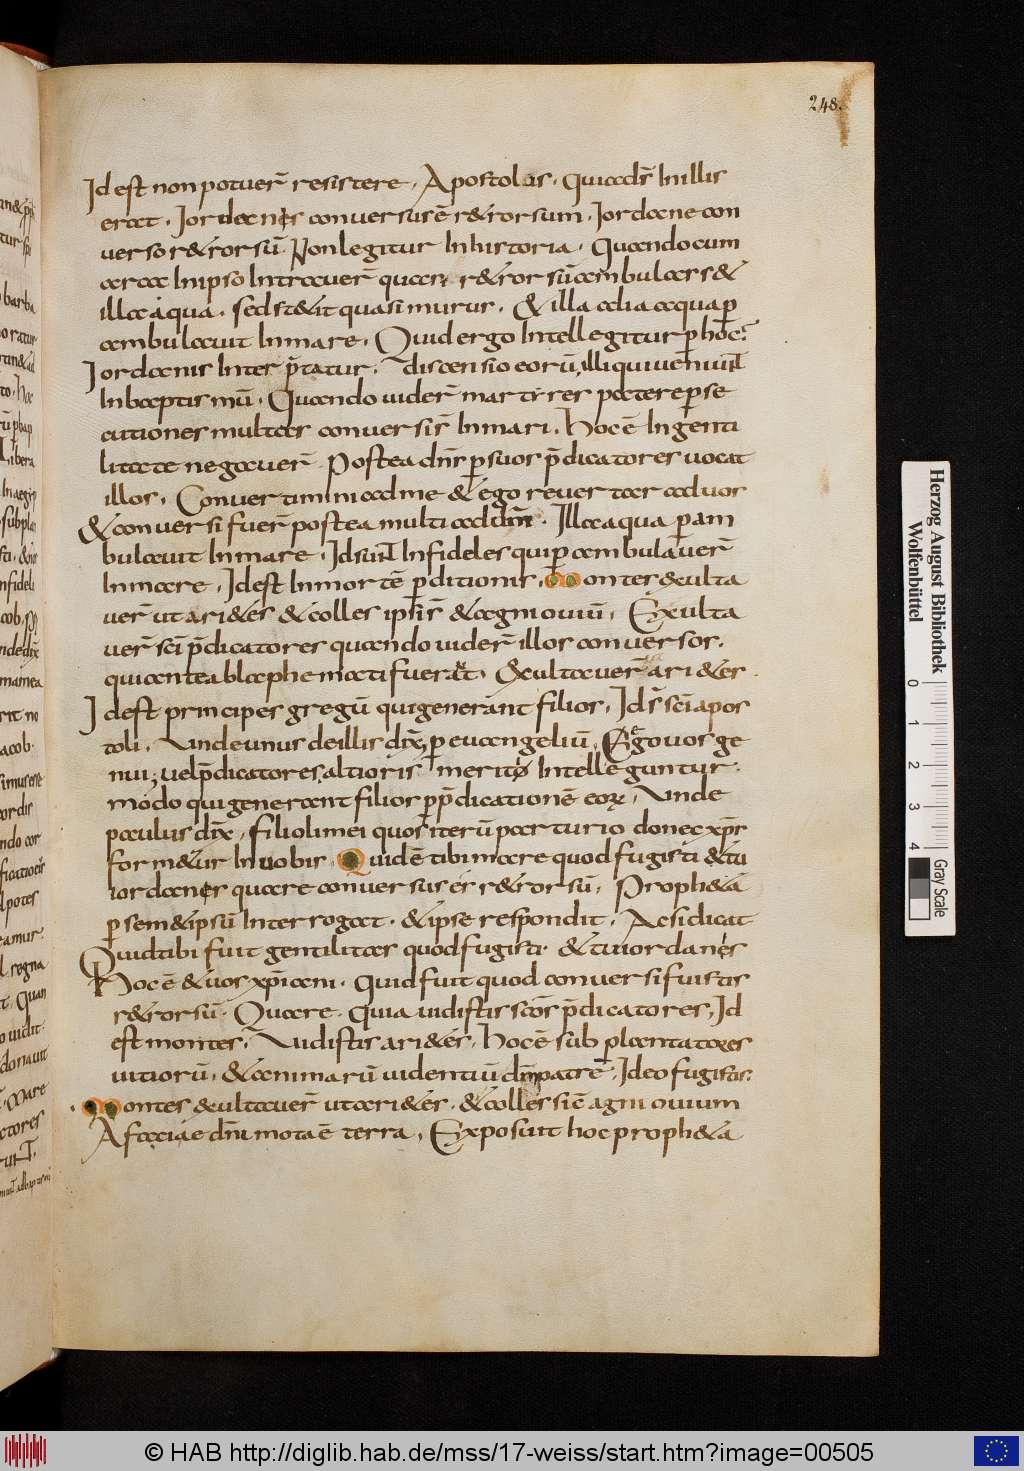 248.
Id est non potuer̄ resistere. Apostolus. Quia ads̄t in illis
erat. Iordanes conversus ē r&rorsum. Iordane con
verso r&rorsū. Non legitur in historia. Quando cum
arca in ipso intraver̄ r&rorsū ambulass&
illa aqua. sed st&it quasi murus. & illa alia aqua p̄
ambulavit in mare. Quid ergo intellegitur p̄ hoc?
Iordanis inter p̄tatur. discensio eorū, illi qui veniunt
in baptismū. Quando vider̄ martires patere p̄se
cutiones multas conversi sr̄ in mari. Hoc ē in genti
litate negaver̄. Postea dn̄s p̄ suos p̄dicatores vocat
illos. Convertimini ad me & ego revertar ad vos
& conversi fuer̄ postea multi ad dn̄m. Illa aqua p̄am
bulavit in mare. Id sunt infideles qui p̄ambulaver̄
in mare. Id est in mortē p̄ditionis. Montes exulta
ver̄ ut ari&es & colles ips̄i sr̄ & agni oviū. Exulta
ver̄ sc̄i p̄dicatores quando vider̄ illos conversos.
qui antea blasphemati fuerat. Exultaver̄ ari&es.
Id est principes gregū qui generant filios. Id s̄ sc̄i apos
toli. Unde unus de illis dix̄, p̄ evangeliū. Ego vos ge
nui; vel p̄dicatores altioris merito intelleguntur.
modo qui generant filios p̄ p̄dicationē eoꝝ. Unde
paulus dix̄. filioli mei quos iterū parturio donec xp̄s
form&ur in vobis. Quid ē tibi mare quod fugisti & tu
iordanes quare conversus es r&rorsū. Proph&a
p̄ sem&ipsū interrogat. & ipse respondit. Ac si dicat
Quid tibi fuit gentilitas quod fugisti. & tu iordanes
Hoc ē & vos xp̄iani. Quid fuit quod conversi fuistis
r&rorsū. Quare. Quia vidistis sc̄os p̄dicatores, Id
est montes. Vidistis ari&es. Hoc ē sub plantatores
vitiorū. & animarū videntiū dn̄m patrē. Ideo fugistis:
Montes exultaver̄ ut ari&es. & colles sic̄ agni ovium
A faciae dn̄i mota ē terra. Exposuit hoc proph&a
Herzog August Bibliothek
Wolfenbüttel
0
1
2
3
4
Gray Scale
© HAB http://diglib.hab.de/mss/17-weiss/start.htm?image=00505